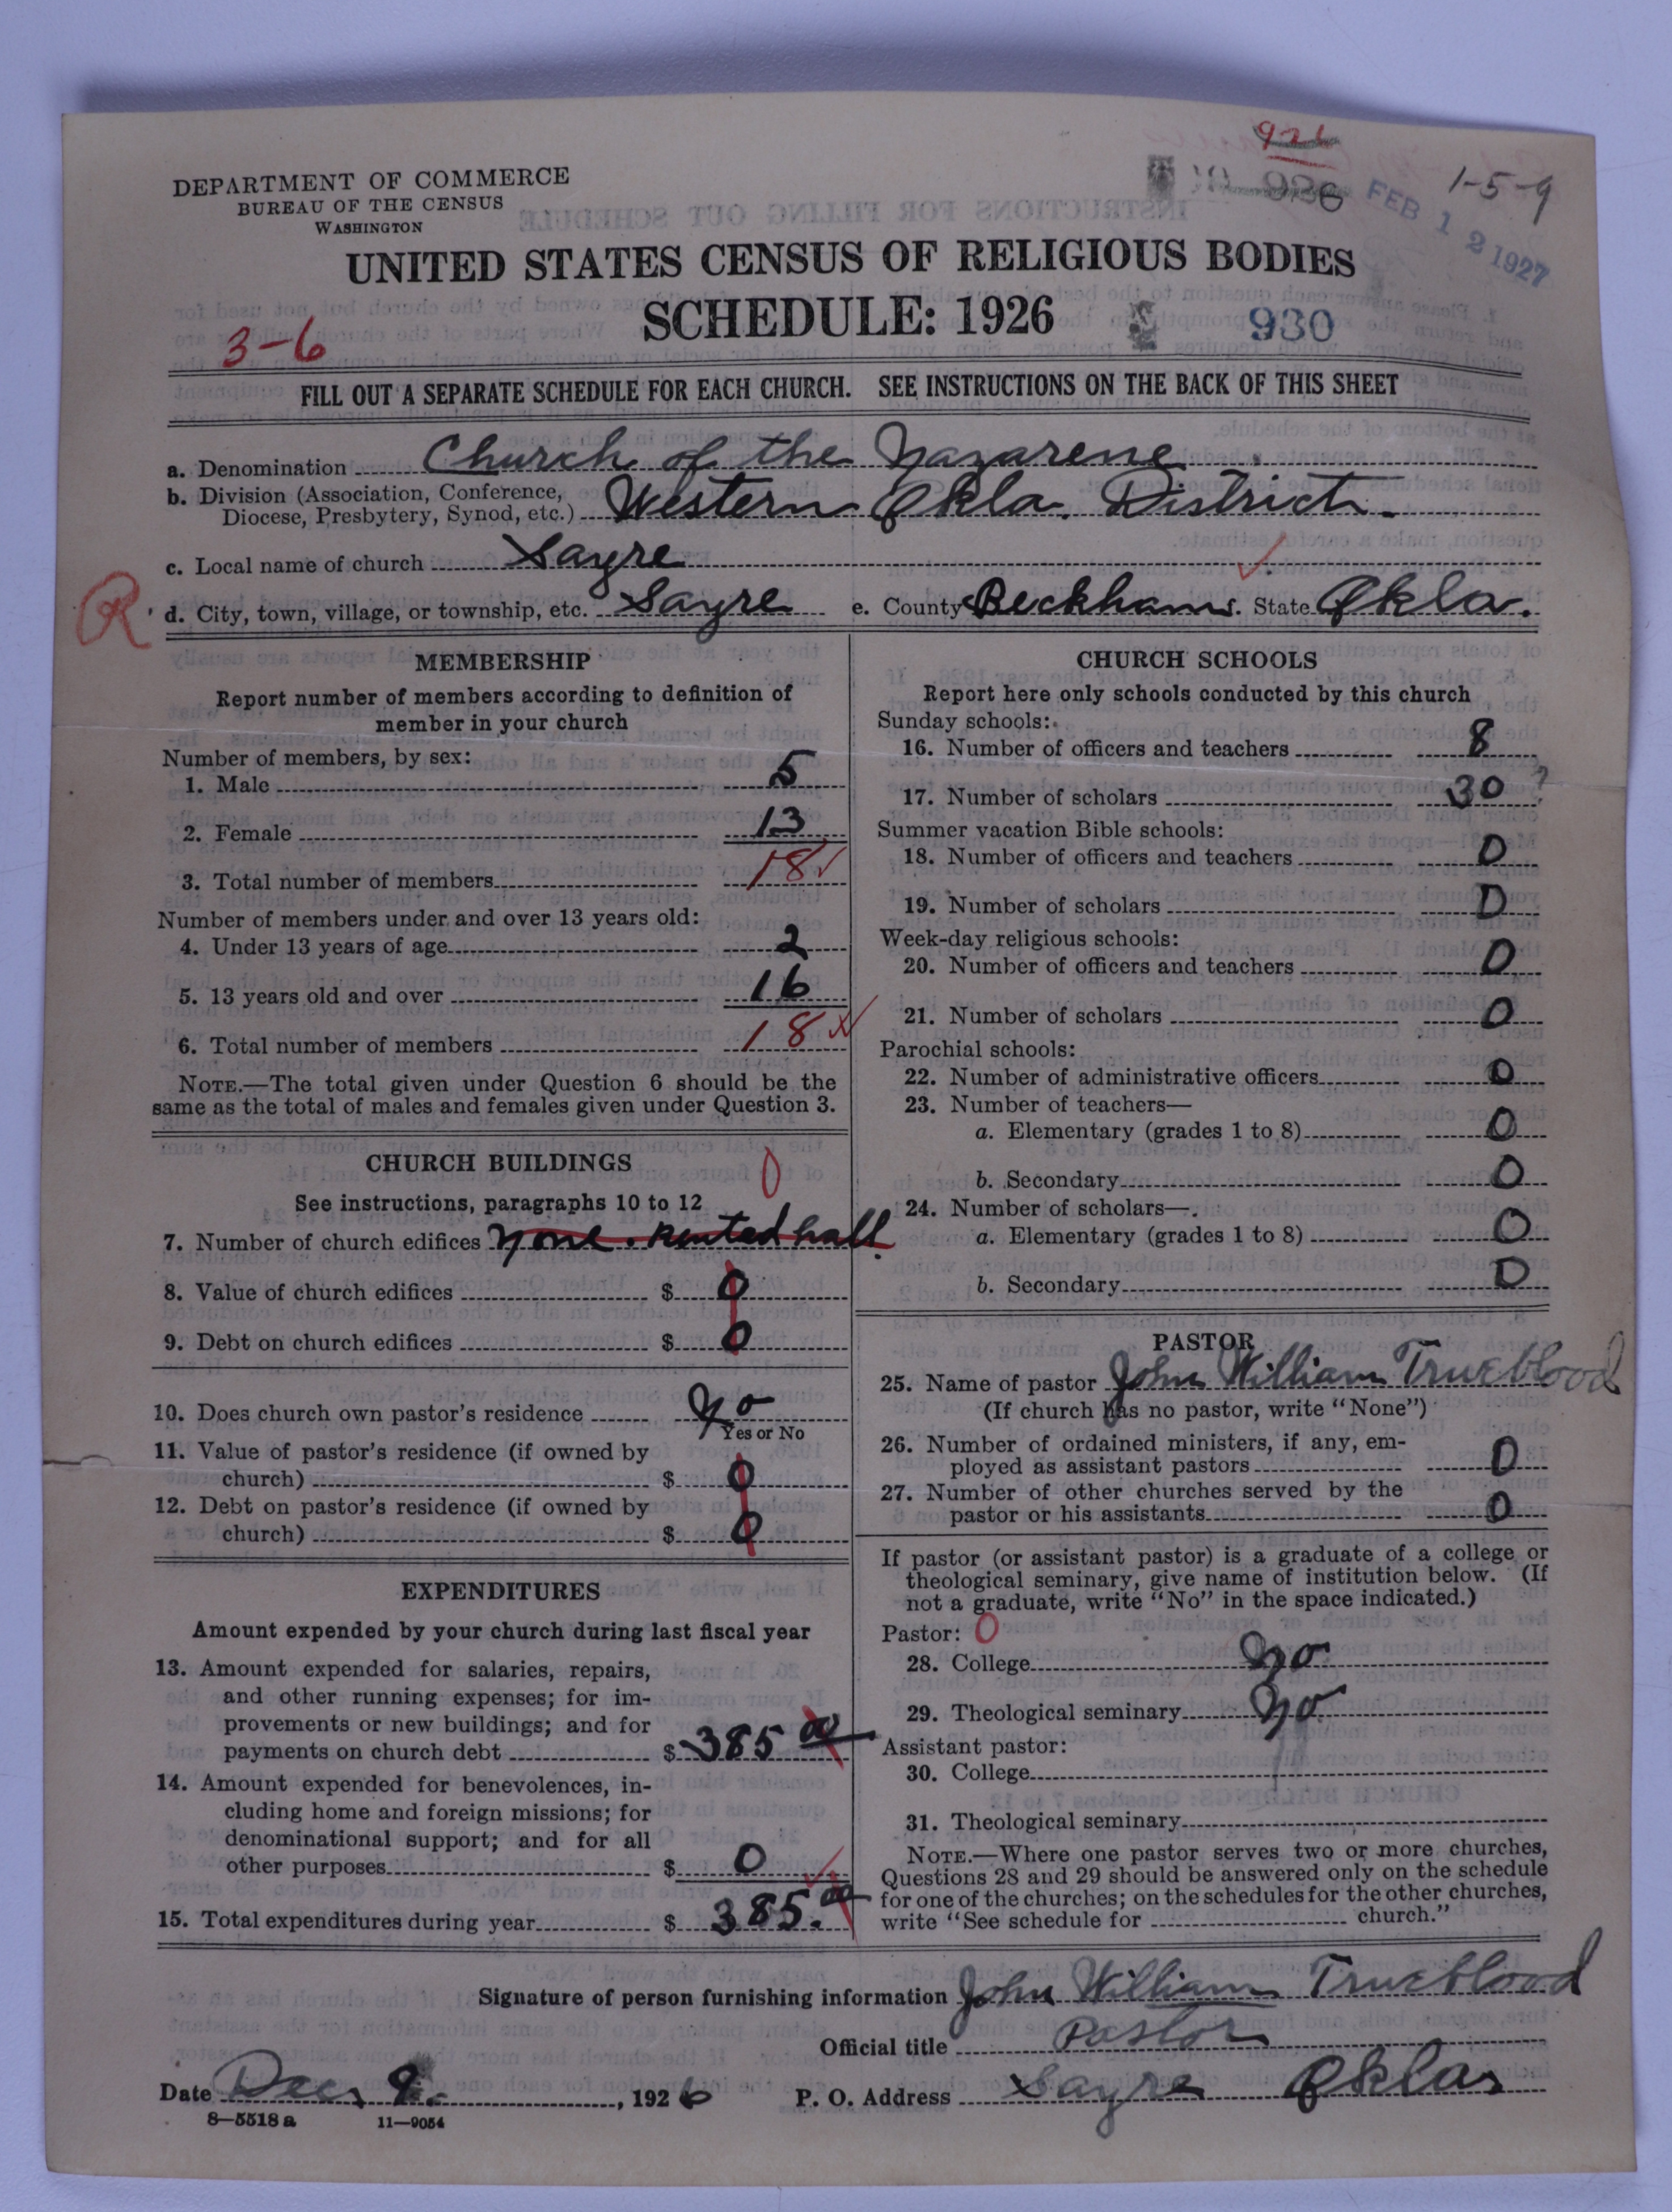 926
936
1-5-9
FEB 12 1927
DEPARTMENT OF COMMERCE
BUREAU OF THE CENSUS
WASHINGTON
UNITED STATES CENSUS OF RELIGIOUS BODIES
SCHEDULE: 1926
930
3-6
FILL OUT A SEPARATE SCHEDULE FOR EACH CHURCH. SEE INSTRUCTIONS ON THE BACK OF THIS SHEET
a. Denomination Church of the Nazarene
b. Division (Association, Conference, Diocese, Presbytery, Synod, etc.) Western Okla. District.
c. Local name of church Sayre
R d. City, town, village, or township, etc. Sayre e. County Beckham. State Okla.
MEMBERSHIP
Report number of members according to definition of
member in your church
Number of members, by sex:
1. Male 5
2. Female 13
3. Total number of members 18
Number of members under and over 13 years old:
4. Under 13 years of age 2
5. 13 years old and over 16
6. Total number of members 18
NOTE.—The total given under Question 6 should be the
same as the total of males and females given under Question 3.
CHURCH BUILDINGS
0
See instructions, paragraphs 10 to 12
7. Number of church edifices None. Rented hall.
8. Value of church edifices $ 0
9. Debt on church edifices $ 0
10. Does church own pastor's residence No
Yes or No
11. Value of pastor's residence (if owned by
church) $ 0
12. Debt on pastor's residence (if owned by
church) $ 0
EXPENDITURES
Amount expended by your church during last fiscal year
13. Amount expended for salaries, repairs,
and other running expenses; for im-
provements or new buildings; and for
payments on church debt $ 385 00
14. Amount expended for benevolences, in-
cluding home and foreign missions; for
denominational support; and for all
other purposes $ 0
15. Total expenditures during year $ 385.00
CHURCH SCHOOLS
Report here only schools conducted by this church
Sunday schools:
16. Number of officers and teachers 8
17. Number of scholars 30 ?
Summer vacation Bible schools:
18. Number of officers and teachers 0
19. Number of scholars 0
Week-day religious schools:
20. Number of officers and teachers 0
21. Number of scholars 0
Parochial schools:
22. Number of administrative officers 0
23. Number of teachers—
a. Elementary (grades 1 to 8) 0
b. Secondary 0
24. Number of scholars—
a. Elementary (grades 1 to 8) 0
b. Secondary 0
PASTOR
25. Name of pastor John William Trueblood
(If church has no pastor, write "None")
26. Number of ordained ministers, if any, em-
ployed as assistant pastors 0
27. Number of other churches served by the
pastor or his assistants 0
If pastor (or assistant pastor) is a graduate of a college or
theological seminary, give name of institution below. (If
not a graduate, write "No" in the space indicated.)
Pastor: 0
28. College No
29. Theological seminary No
Assistant pastor:
30. College
31. Theological seminary
NOTE.—Where one pastor serves two or more churches,
Questions 28 and 29 should be answered only on the schedule
for one of the churches; on the schedules for the other churches,
write "See schedule for church."
Signature of person furnishing information John William Trueblood
Official title Pastor
Date Dec, 9., 1926 P. O. Address Sayre Okla
8—5518 a 11—9054